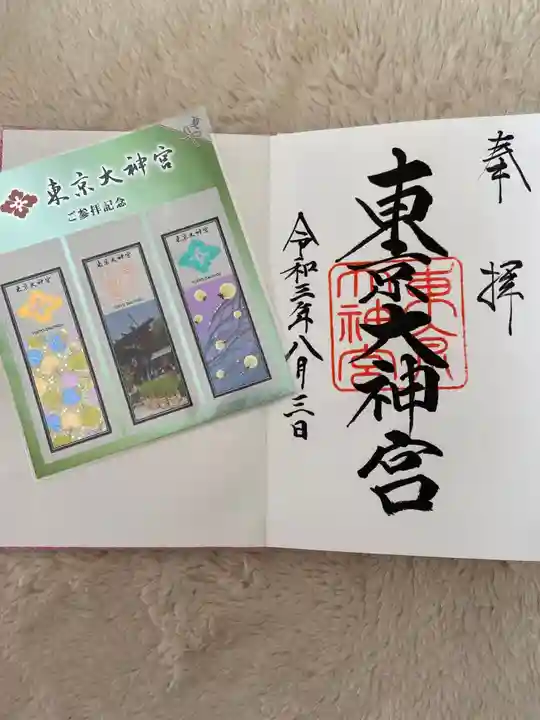 東京大神宮
ご参拝記念
東京大神宮
東京大神宮
東京大神宮
奉拝
東京大神宮
東京大神宮
令和三年八月三日